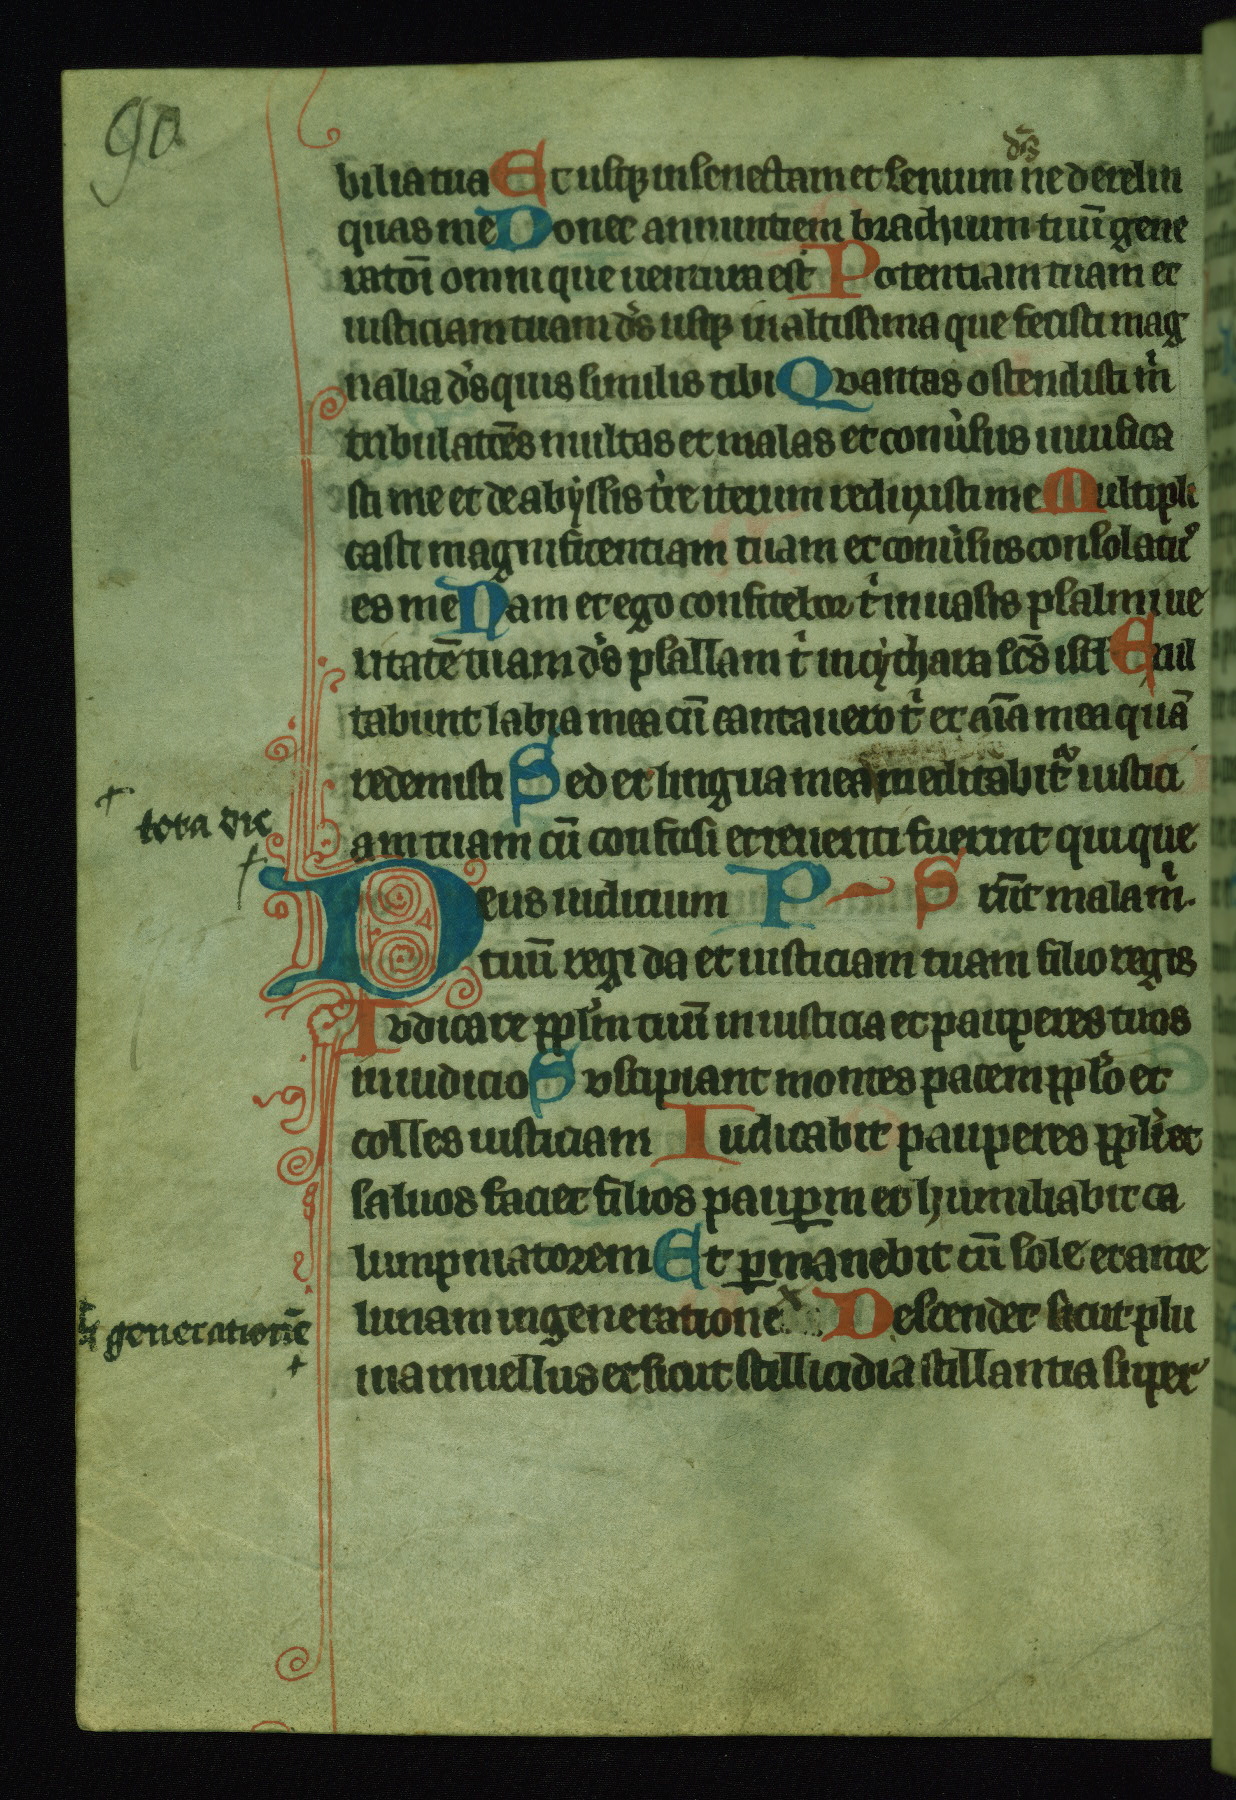 90
biliatua Et usq; in senectam et senium dꝰs ne derelin
quas me Donec annuntiem brachium tuū gene
ratōi omni que uentura est Potentiam tuam et
iusticiam tuam ds usq; in altissima que fecisti mag
nalia ds quis similis tibi Qvantas ostendisti m
tribulatões multas et malas et conusus uiuifica
sti me et de abyssis tre iterum reduxisti me Multipli
casti magnificentiam tuam et conusus consolatus
es me Nam et ego confitebor t in uasis psalmi ue
ritatē tuam ds psallam t in cythara scs isrl Exul
tabunt labia mea cū cantauero t et aīa mea quā
redemisti Sed et lingua mea meditabit iustici
tota die
am tuam cū confusi et reueriti fuerint qui que
Deus iudicium P S runt mala m.
tuū regi da et iusticiam tuam filio regis
Ivdicare pplm tuū in iusticia et pauperes tuos
in iudicio Svscipiant montes pacem pplo et
colles iusticiam Iudicabit pauperes ppli et
saluos faciet filios paupꝑm et humiliabit ca
lumpniatorem Et ꝑmanebit cū sole et ante
lunam in generatione Descendet sicut plu
generationē
uia in uellus et sicut stillicidia istillantia super